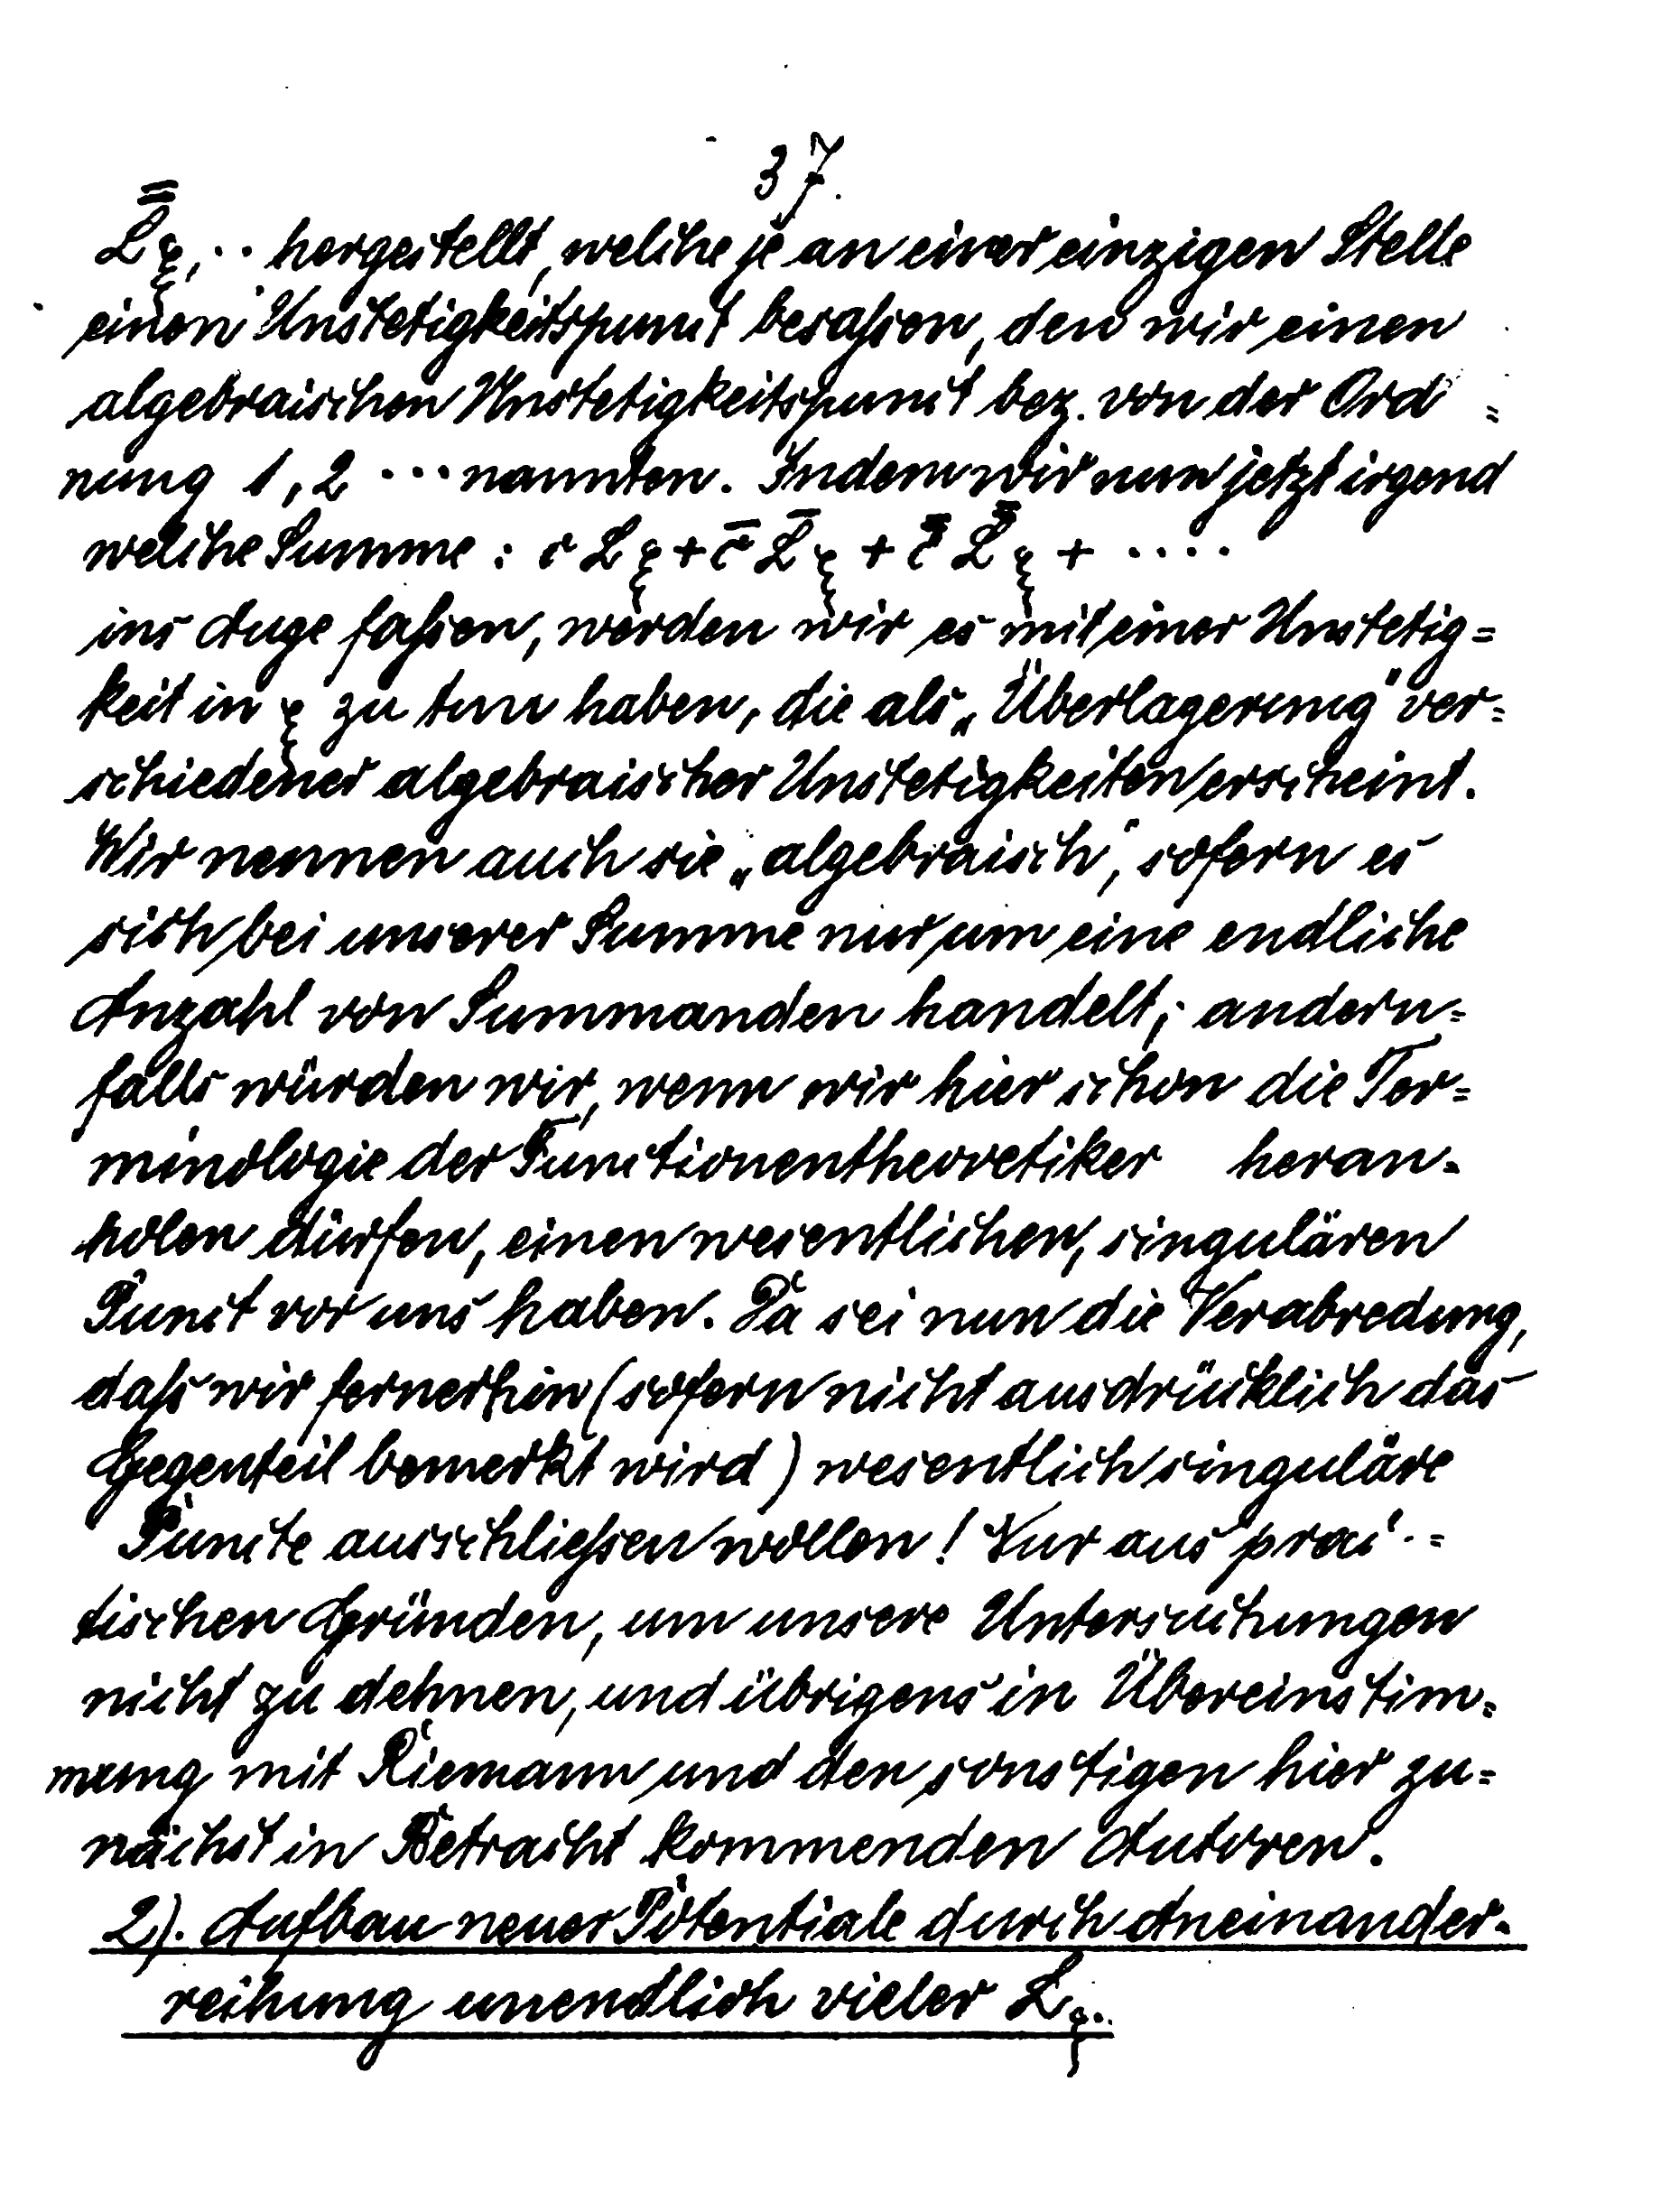 37.
L̿ξ, ·· hergestellt, welche je an einer einzigen Stelle
einen Unstetigkeitspunct besaßen, den wir einen
algebraischen Unstetigkeitspunct bez. von der Ord=
nung 1, 2 ··· nannten. Indem wir nun jetzt irgend
welche Summe: c Lξ + c̄ L̄ξ + c̿ L̿ξ + ····
ins Auge faßen, werden wir es mit einer Unstetig=
keit in ξ zu tun haben, die als „Überlagerung" ver=
schiedener algebraischer Unstetigkeiten erscheint.
Wir nennen auch sie „algebraisch", sofern es
sich bei unserer Summe nur um eine endliche
Anzahl von Summanden handelt; andern=
falls würden wir, wenn wir hier schon die Ter=
minologie der Functionentheoretiker heran-
holen dürfen, einen wesentlichen, singulären
Punct vor uns haben. Da sei nun die Verabredung,
daß wir fernerhin (sofern nicht ausdrücklich das
Gegenteil bemerkt wird) wesentlich singuläre
Puncte ausschließen wollen! Nur aus prac=
tischen Gründen, um unsere Untersuchungen
nicht zu dehnen, und übrigens in Übereinstim=
mung mit Riemann und den sonstigen hier zu=
nächst in Betracht kommenden Autoren.
2). Aufbau neuer Potentiale durch Aneinander-
reihung unendlich vieler Lξ.